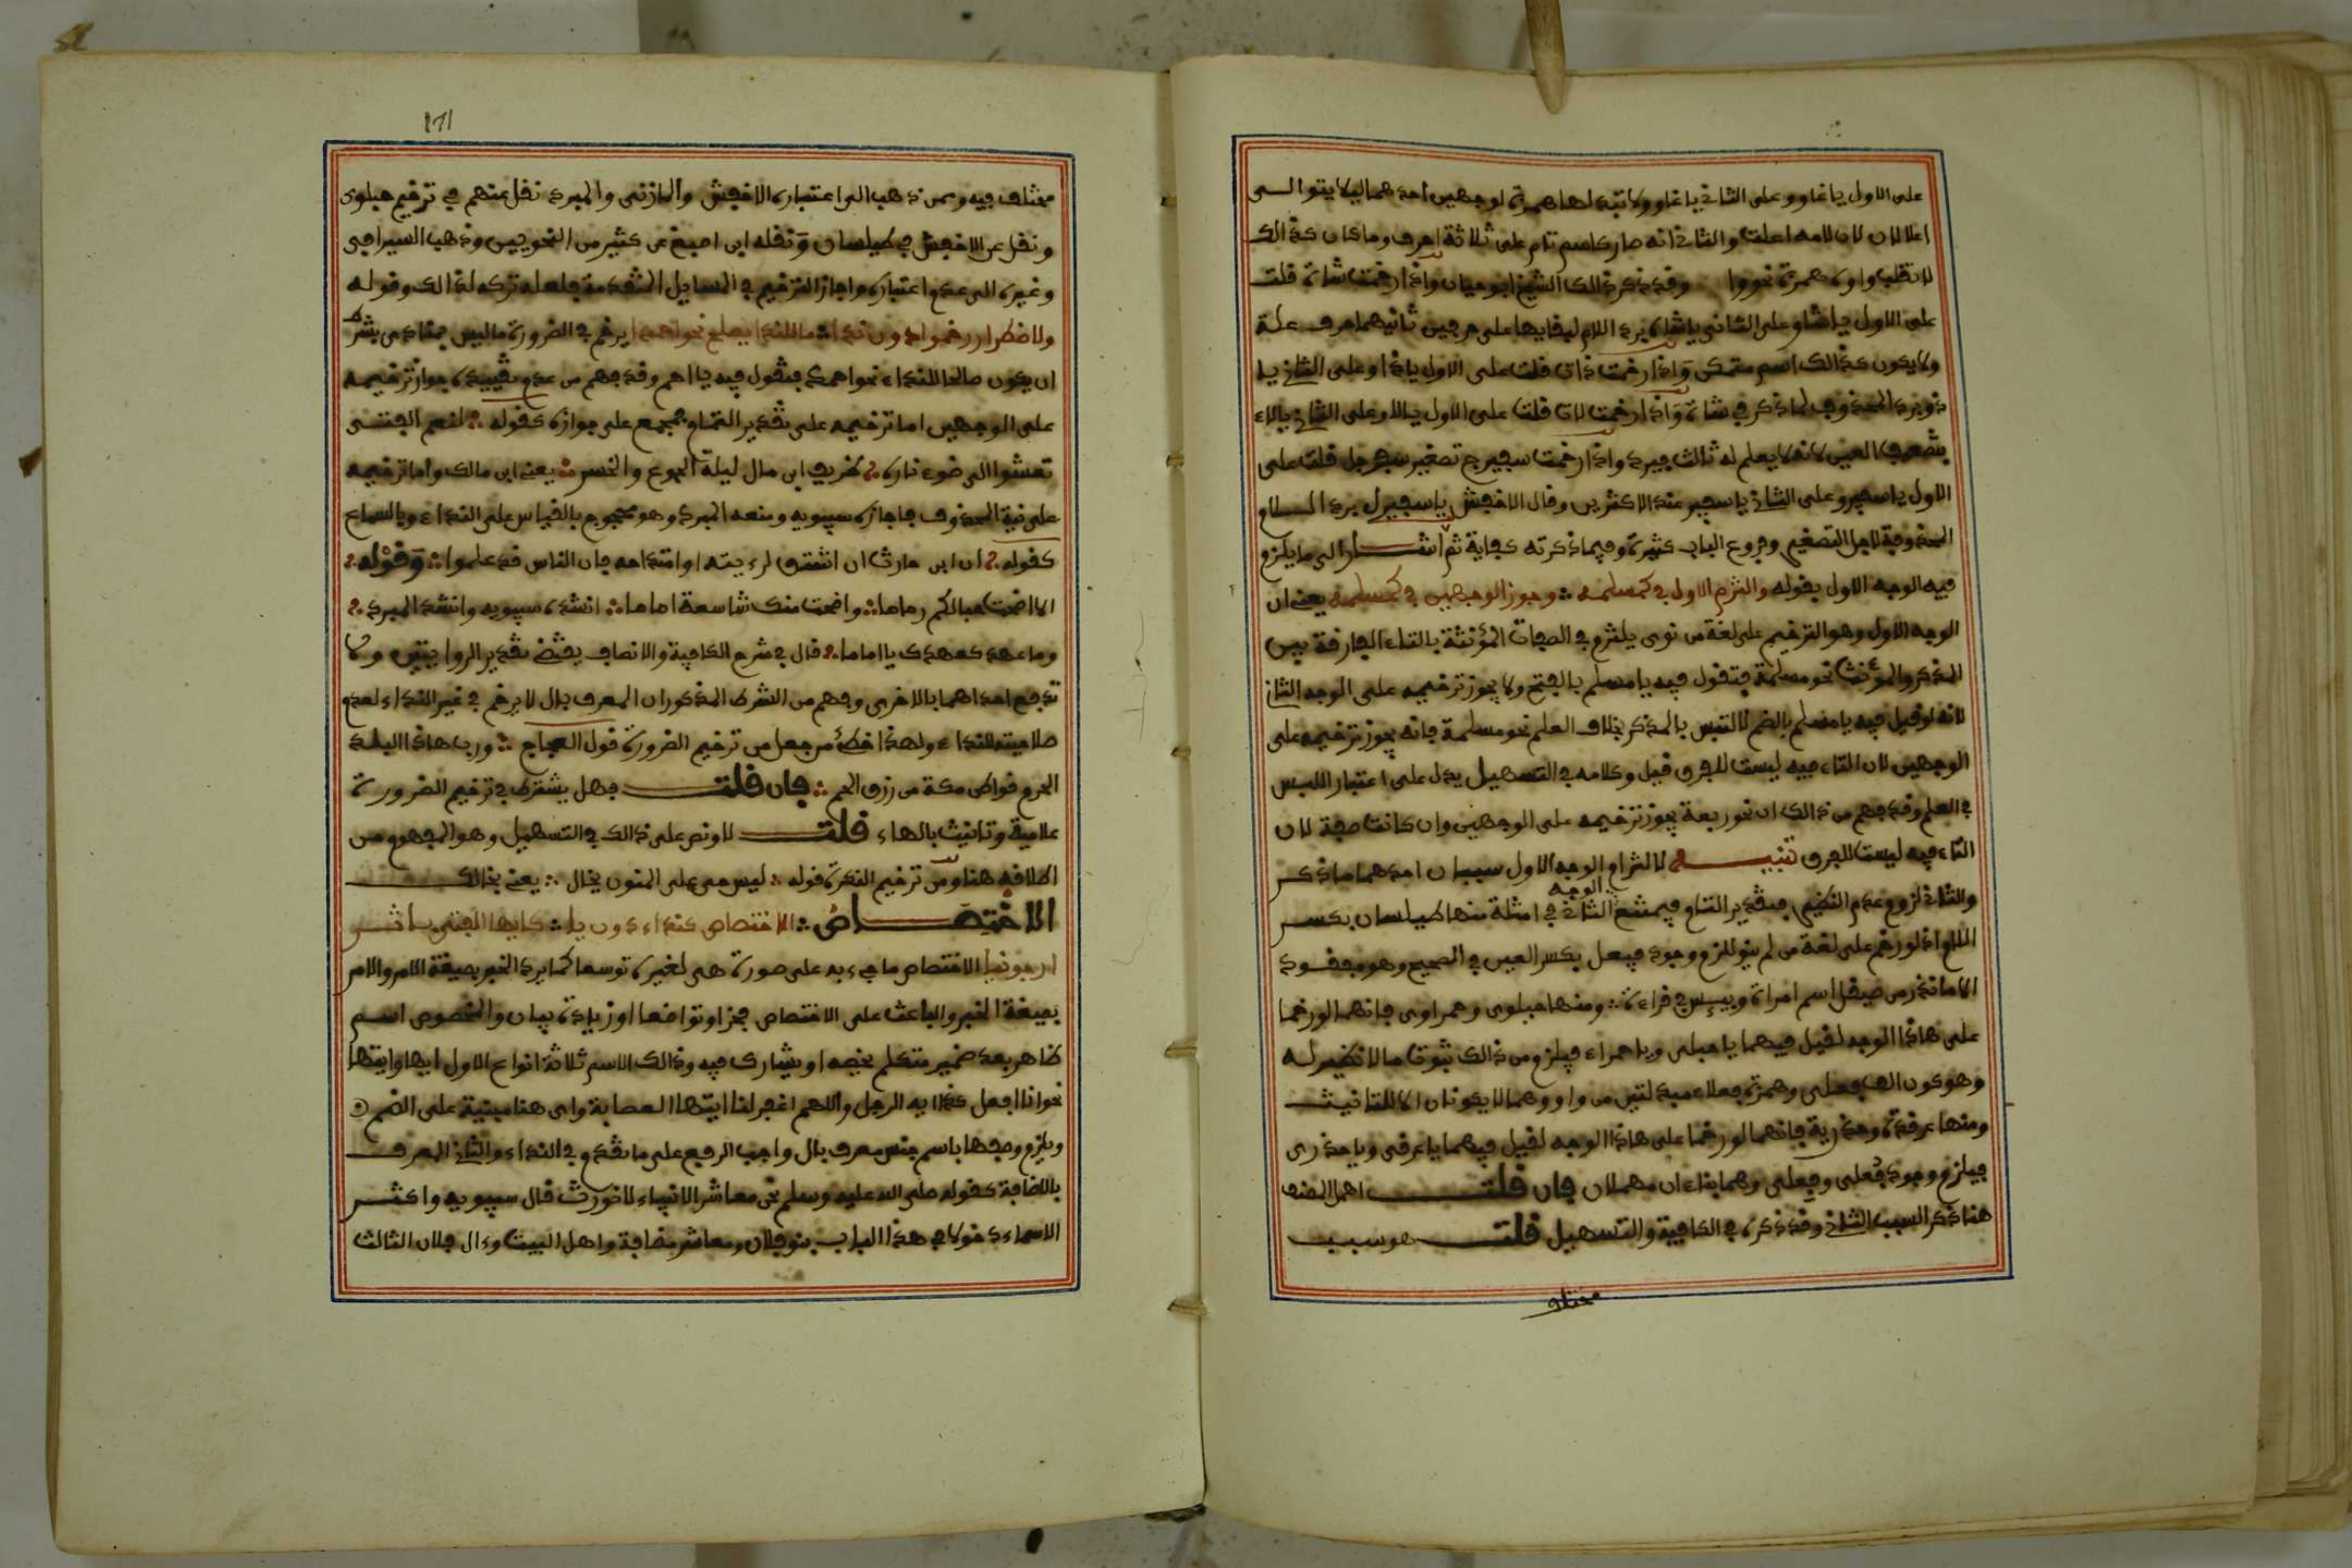 على الاول يا غاو وعلى الثاني يا غاو ولا تبدلها همزة لوجهين احدهما ليلا يتوالى
اعلالان لان لامه اعلت والثاني انه صار كاسم تام على ثلاثة احرف وما كان كذالك
لا تقلب واوه همزة نحو واو وقد ذكر ذالك الشيخ ابو حيان واذا رخمت شاة قلت
على الاول يا شا وعلى الثاني يا شاه يرد اللام لبقايها على حرفين ثانيهما حرف علة
ولا يكون كذالك اسم متمكن واذا رخمت ذات قلت على الاول يا ذا وعلى الثاني يا
ذو يرد المحذوف لما ذكر في شاة واذا رخمت لات قلت على الاول يا لا وعلى الثاني يا لاء
بتضعيف العين لانه لا يعلم له ثالث فيرد واذا رخمت سفيرج تصغير سفرجل قلت على
الاول يا سفير وعلى الثاني يا سفير عند الاكثرين وقال الاخفش يا سفيرل يرد اللام
المحذوفة لاجل التصغير وفروع الباب كثيرة وفيما ذكرته كفاية ثم اشار الى ما يلزم
فيه الوجه الاول بقوله والتزم الاول في كمسلمه وجوز الوجهين في كمسلمة يعني ان
الوجه الاول وهو الترخيم على لغة من نوى يلتزم في الصفات المؤنثة بالتاء الفارقة بين
المذكر والمؤنث نحو مسلمة فتقول فيه يا مسلم بالفتح ولا يجوز ترخيمه على الوجه الثاني
لانه لو قيل فيه يا مسلم بالضم لالتبس بالمذكر بخلاف العلم نحو مسلمة فانه يجوز ترخيمه على
الوجهين لان التاء فيه ليست للفرق قيل وكلامه في التسهيل يدل على اعتبار اللبس
في العلم وقد فهم من ذالك ان نحو ربعة يجوز ترخيمه على الوجهين وان كانت صفة لان
التاء فيه ليست للفرق تنبيه لالتزام الوجه الاول سببان احدهما ما ذكر
والثاني لزوم عدم النظير بتقدير التمام فيمتنع الوجه الثاني في امثلة منها طيلسان بكسر
اللام اذ لو رخم على لغة من لم ينو للزم وجود فيعل بكسر العين في الصحيح وهو مفقود
الا ما ندر من صيقل اسم امراة وبييس في قراءة ومنها حبلوى وحمراوى فانهما لو رخما
على هاذا الوجه لقيل فيهما يا حبلى ويا حمراء فيلزم من ذالك ثبوت ما لا نظير له
وهو كون الف فعلى وهمزة فعلاء مبدلتين من واو وهما لا يكونان الا للتانيث
ومنها عرقوة وحذرية فانهما لو رخما على هاذا الوجه لقيل فيهما يا عرقى ويا حذرى
فيلزم وجود فعلى وفعلى وهما بناءان مهملان فان قلت اهمل المصنف
هنا ذكر السبب الثاني وقد ذكره في الكافية والتسهيل قلت هو سبب
مختلف
171
مختلف فيه وممن ذهب الى اعتباره الاخفش والمازنى والمبرد نقل عنهم في ترخيم حبلوى
ونقل عن الاخفش في طيلسان ونقله ابن اصبغ عن كثير من النحويين وذهب السيرافى
وغيره الى عدم اعتباره واجاز الترخيم في المسايل المتقدمة فلعله تركه لذالك وقوله
ولاضطرار رخموا دون ندا ما للندا يصلح نحو احمدا يرخم في الضرورة ما ليس بمنادى بشرط
ان يكون صالحا للنداء نحو احمد فتقول فيه يا احم وقد فهم من عدم تقييده جواز ترخيمه
على الوجهين اما ترخيمه على تقدير التمام فمجمع على جوازه كقوله لنعم الفتى
تعشوا الى ضوء ناره طريف ابن مال ليلة الجوع والخصر يعني ابن مالك واما ترخيمه
على نية المحذوف فاجازه سيبويه ومنعه المبرد وهو محجوج بالقياس على النداء وبالسماع
كقوله ان ابن حارث ان اشتق لرءيته او امتدحه فان الناس قد علموا وقوله
الا اضحت حبالكم رماما واضحت منك شاسعة اماما انشده سيبويه وانشد المبرد
وما عهد كعهدك يا اماما قال في شرح الكافية والانصاف يقتضي تقدير الروايتين ولا
تدفع احداهما بالاخرى وفهم من الشرط المذكور ان المعرف بال لا يرخم في غير النداء لعدم
صلاحيته للنداء ولهذا خطئ من جعل من ترخيم الضرورة قول العجاج ورب هاذا البلد
الحرم قواطن مكة من ورق الحم فان قلت فهل يشترط في ترخيم الضرورة
علمية وتانيث بالهاء قلت لا ونص على ذالك في التسهيل وهو المفهوم من
اطلاقه هنا ومن ترخيم النكرة قوله ليس حى على المنون بخال يعني بخالد
الاختصاص الاختصاص كنداء دون يا كايها الفتى باثر
ارجونيا الاختصاص ما جىء به على صورة هى لغيره توسعا كما يرد الخبر بصيغة الامر والامر
بصيغة الخبر والباعث على الاختصاص فخر او تواضع او زيادة بيان والمخصوص اسم
ظاهر بعد ضمير متكلم يخصه او يشارك فيه وذالك الاسم ثلاثة انواع الاول ايها وايتها
نحو انا افعل كذا ايه الرجل واللهم اغفر لنا ايتها العصابة واى هنا مبنية على الضم
ويلزم وصفها باسم جنس معرف بال واجب الرفع على ما تقدم في النداء والثاني المعرف
بالاضافة كقوله صلى الله عليه وسلم نحن معاشر الانبياء لا نورث قال سيبويه واكثر
الاسماء دخولا في هذا الباب بنو فلان ومعاشر مضافة واهل البيت وءال فلان الثالث